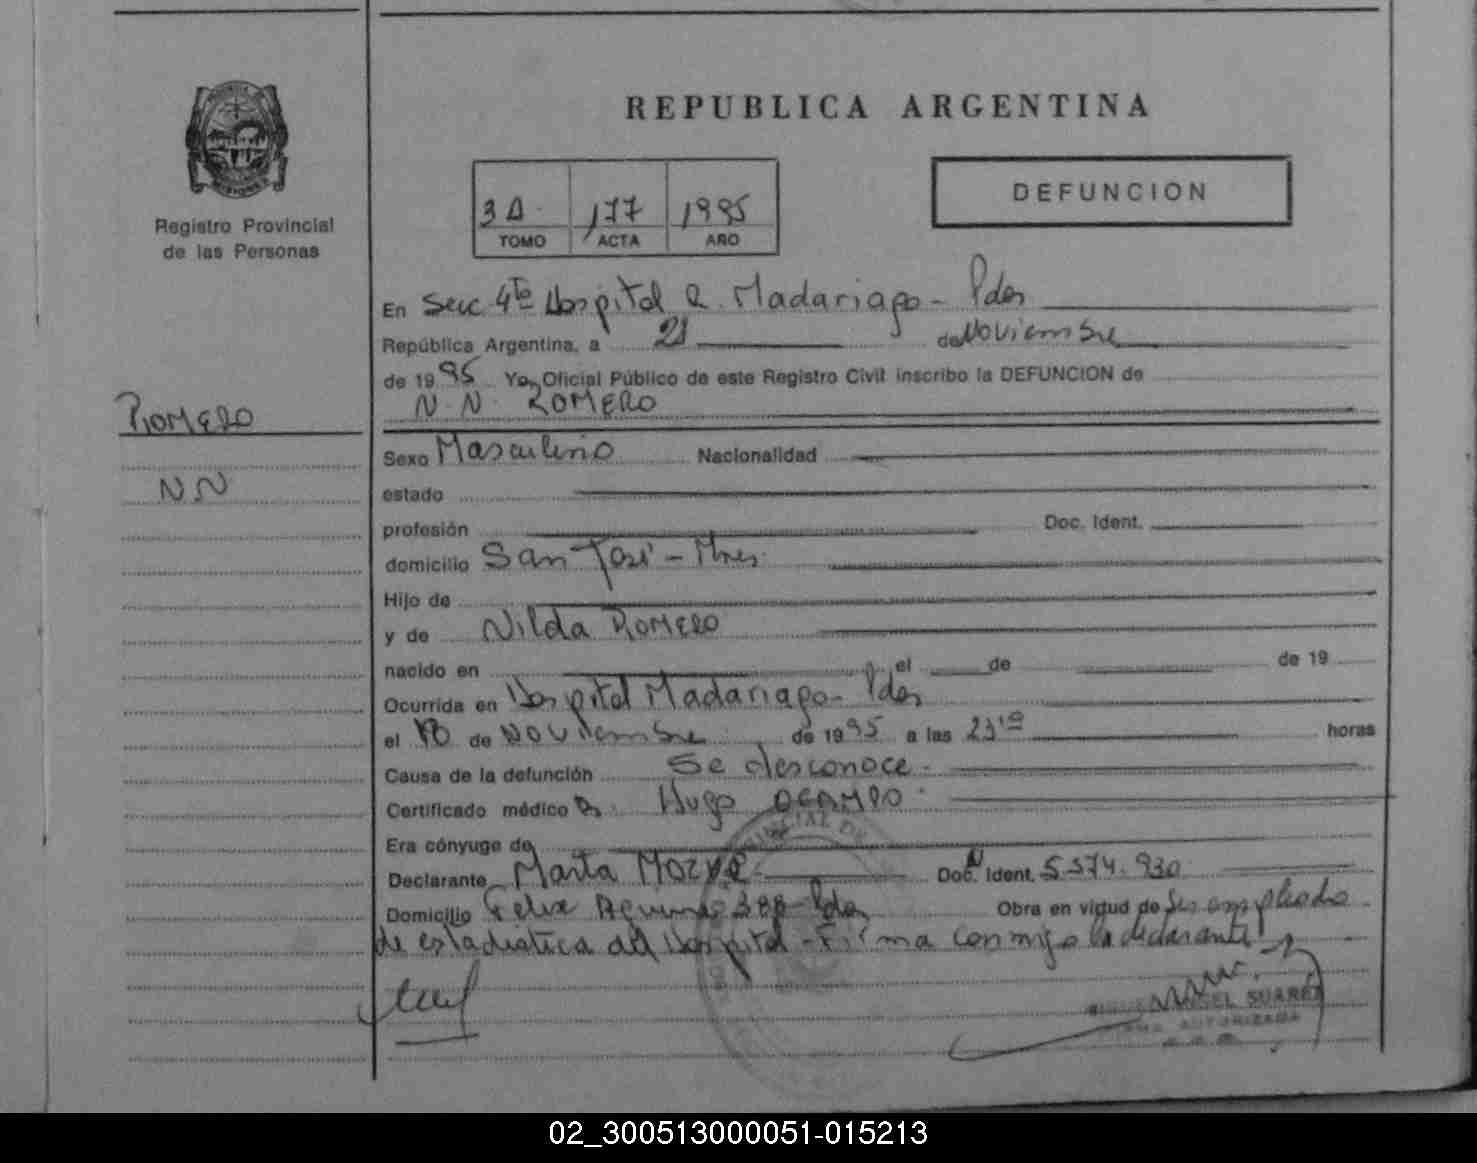 REPUBLICA ARGENTINA
DEFUNCION
Registro Provincial
de las Personas
3 177 1995
TOMO ACTA AÑO
En Secc 4ta Hospital R. Madariaga - Pdas
República Argentina, a 21 de Noviembre
de 1995 Yo, Oficial Público de este Registro Civil inscribo la DEFUNCION de
N. N. ROMERO
ROMERO
NN
Sexo Masculino Nacionalidad
estado
profesión Doc. Ident.
domicilio San José - Mnes.
Hijo de
y de Nilda ROMERO
nacido en el de de 19
Ocurrida en Hospital Madariaga - Pdas
el 18 de Noviembre de 1995 a las horas
Causa de la defunción Se desconoce.
Certificado médico Hugo OCAMPO.
Era cónyuge de
Declarante Marta Doc. Ident. 5.374.930
Domicilio Felix 388 - Pdas Obra en virtud de ser empleada
de estadistica del Hospital - Firma conmigo la declarante
MIGUEL ANGEL SUAREZ
FIRMA AUTORIZADA
02_300513000051-015213